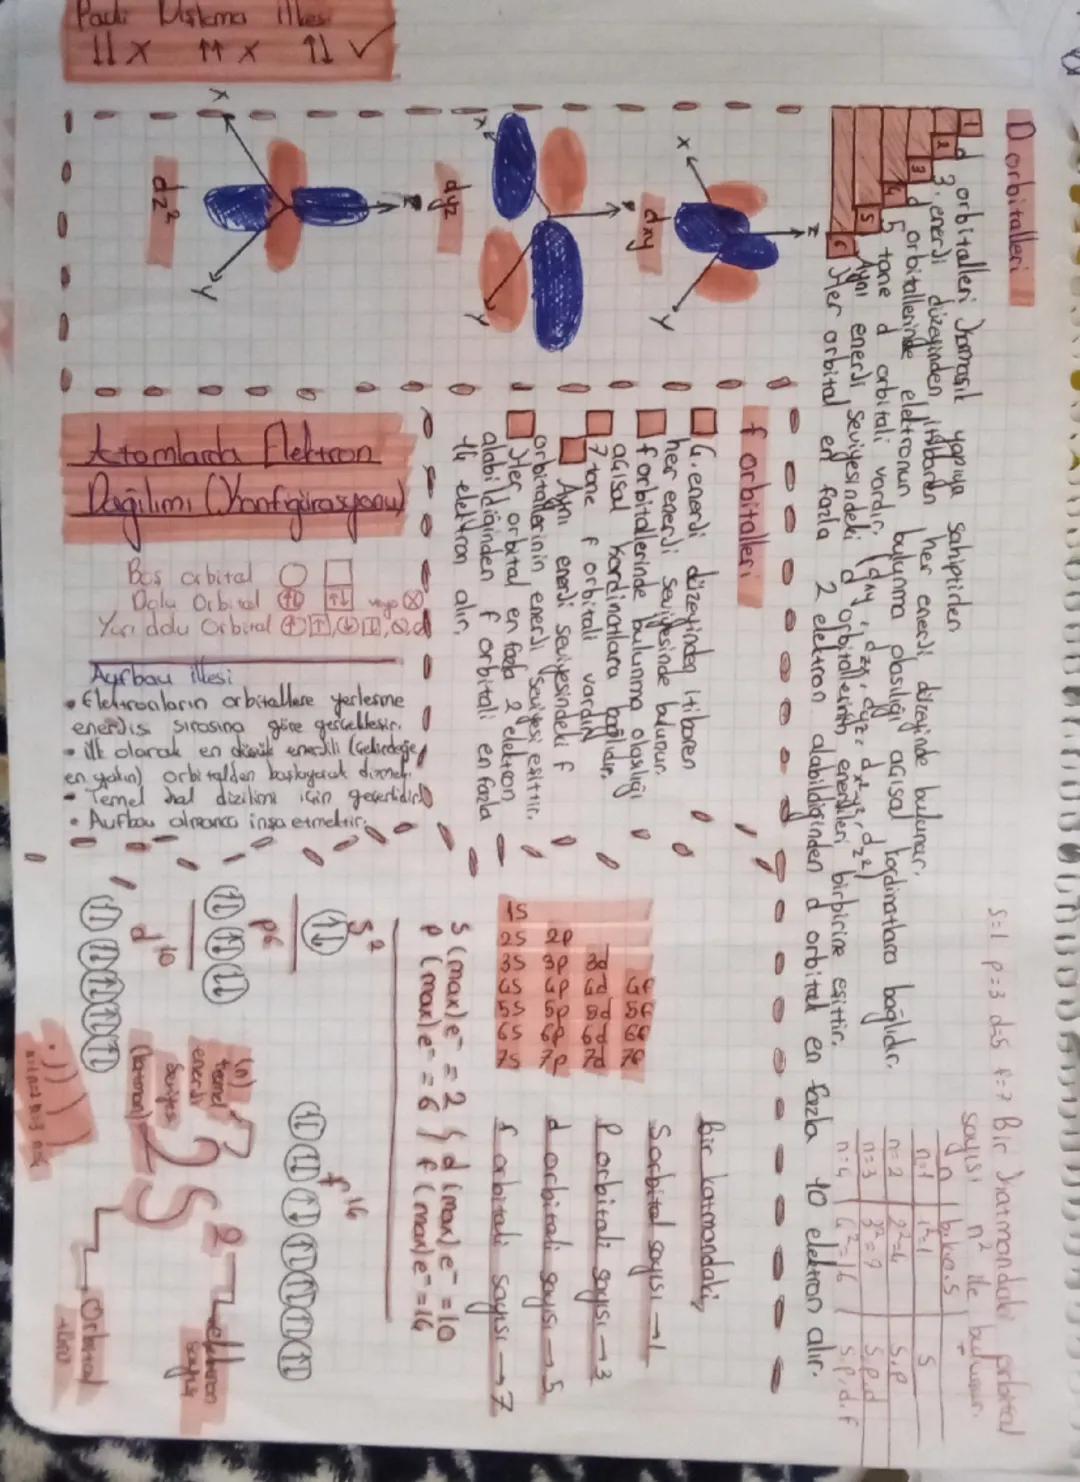 D orbitalleri
1 d orbitalleri karmaşık yapıya sahiptirler.
2 3. enerji düzeyinden itibaren her enerji düzeyinde bulunur.
3 d orbitallerinde elektronun bulunma olasılığı açısal kordinatlara bağlıdır.
4 5 tane d orbitali vardır. (dxy, dzy, dyz, dx²-y², dz²)
5 Aynı enerji seviyesindeki d orbitallerinin enerjileri birbirine eşittir.
6 Her orbital en fazla 2 elektron alabildiğinden d orbitali en fazla 10 elektron alır.
s=1 p=3 d=5 f=7
Bir katmandaki orbital
sayısı n² ile bulunur.
n
n=1 1²=1 s
n=2 2²=4 s,p
n=3 3²=9 s,p,d
n=4 4²=16 s,p,d,f
z
x
y
dxy
z
x
y
dyz
z
x
y
dz²
f orbitalleri
4. enerji düzeyinden itibaren
her enerji seviyesinde bulunur.
f orbitallerinde bulunma olasılığı
açısal kordinatlara bağlıdır.
7 tane f orbitali vardır.
Aynı enerji seviyesindeki f
orbitallerinin enerji seviyesi eşittir.
Her orbital en fazla 2 elektron
alabildiğinden f orbitali en fazla
14 elektron alır.
1s
2s 2p
3s 3p 3d
4s 4p 4d 4f
5s 5p 5d 5f
6s 6p 6d 6f
7s 7p 7d 7f
Bir katmandaki,
S orbital sayısı → 1
P orbitali sayısı → 3
d orbitali sayısı → 5
f orbitali sayısı → 7
S (max) e⁻ = 2 d (max) e⁻ = 10
P (max) e⁻ = 6 f (max) e⁻ = 14
s²
p⁶
d¹⁰
f¹⁴
(n)
temel
enerji
seviyesi
(katman)
2 S 2
elektron
sayısı
Orbital
türü
Pauli Dışlama İlkesi
↓↓ X ↑↑ X ↑↓ ✓
Atomlarda Elektron
Dağılımı (Konfigürasyonu)
Boş orbital
Dolu Orbital veya
Yarı dolu Orbital
Aufbau ilkesi
• Elektronların orbitallere yerleşme
enerjis sırasına göre gerçekleşir.
• ilk olarak en düşük enerjili (çekirdeğe
en yakın) orbitalden başlayarak dizmek
• Temel hal dizilimi için geçerlidir
• Aufbau almanca inşa etmektir.